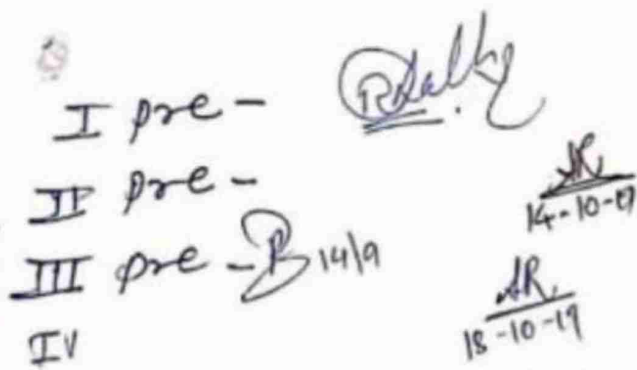 I pre -
II pre -
14-10-19
III pre - B 14/9
AR
18-10-19
IV